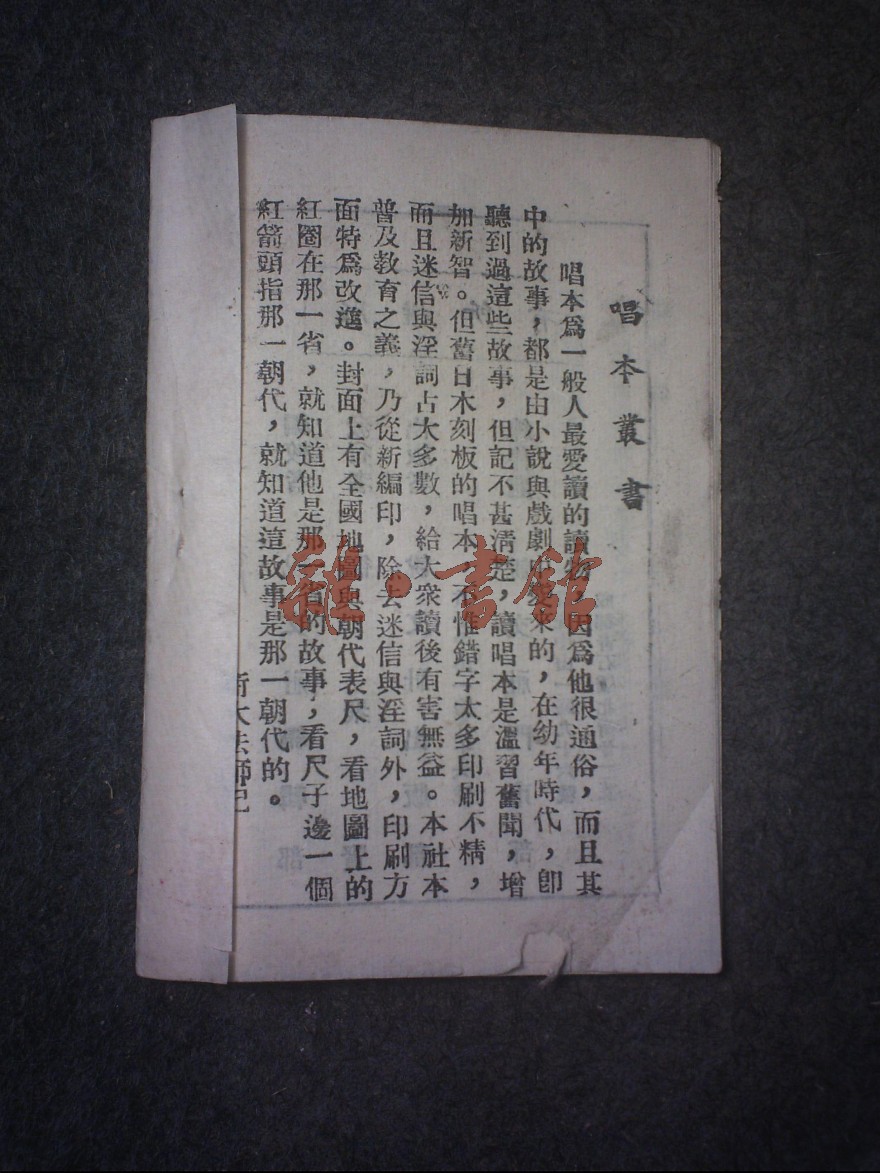 唱本叢書
唱本爲一般人最愛讀的讀物，因爲他很通俗，而且其
中的故事，都是由小說與戲劇 來的，在幼年時代，卽
聽到過這些故事，但記不甚淸楚，讀唱本是溫習舊聞，增
加新智。但舊日木刻板的唱本，不惟錯字太多印刷不精，
而且迷信與淫詞占大多數，給大衆讀後有害無益。本社本
普及敎育之義，乃從新編印，除去迷信與淫詞外，印刷方
面特爲改進。封面上有全國地圖與朝代表尺，看地圖上的
紅圈在那一省，就知道他是那一省的故事，看尺子邊一個
紅箭頭指那一朝代，就知道這故事是那一朝代的。
大法師記
雜·書館